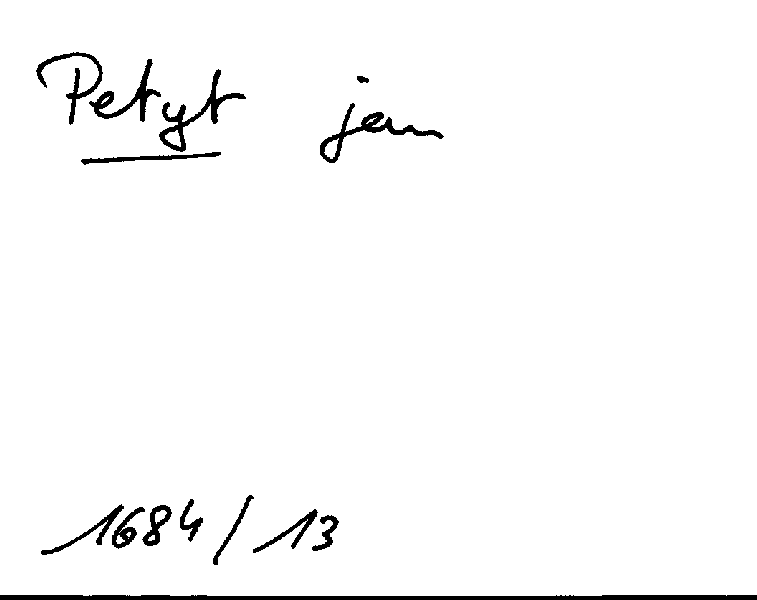 Petyt jean
1684/13